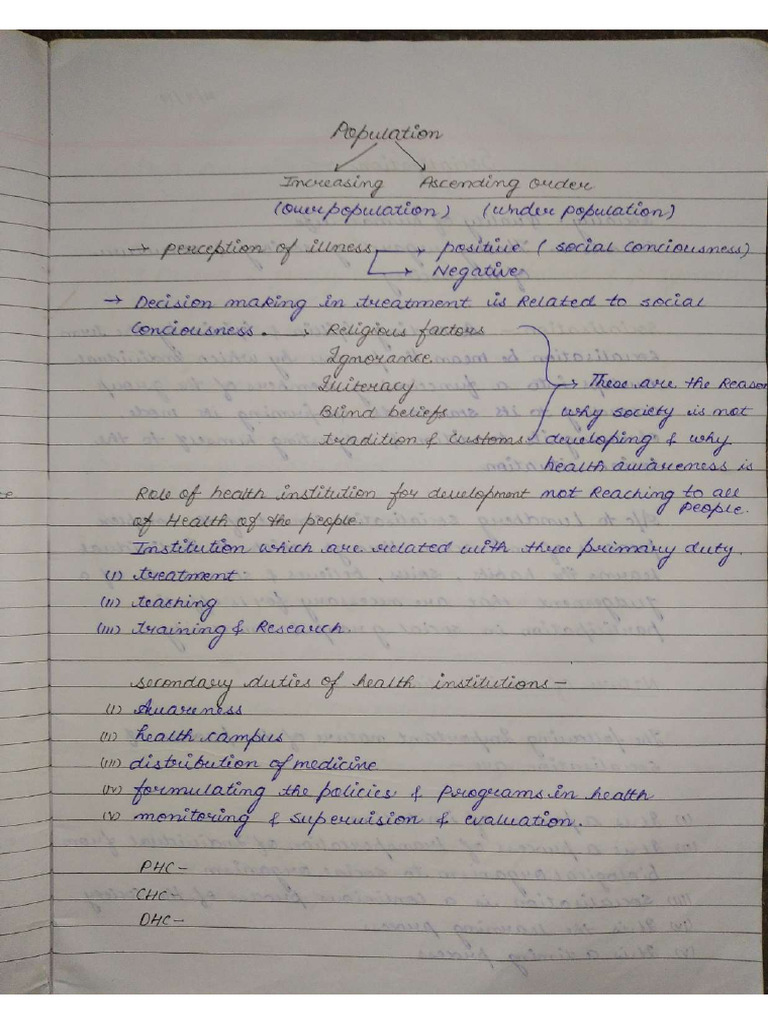 Population
Increasing Ascending order
(over population) (under population)
→ perception of illness → positive (social conciousness)
→ Negative
→ Decision making in treatment is Related to social
conciousness. → Religious factors
Ignorance
Illiteracy → These are the Reason
Blind beliefs why society is not
tradition & customs developing & why
health awareness is
Role of health institution for development not Reaching to all
of Health of the people people.
Institution which are related with three primary duty.
(i) treatment
(ii) teaching
(iii) training & Research.
secondary duties of health institutions -
(i) Awareness
(ii) health campus
(iii) distribution of medicine
(iv) formulating the policies & programs in health
(v) monitoring & supervision & evaluation.
PHC -
CHC -
DHC -